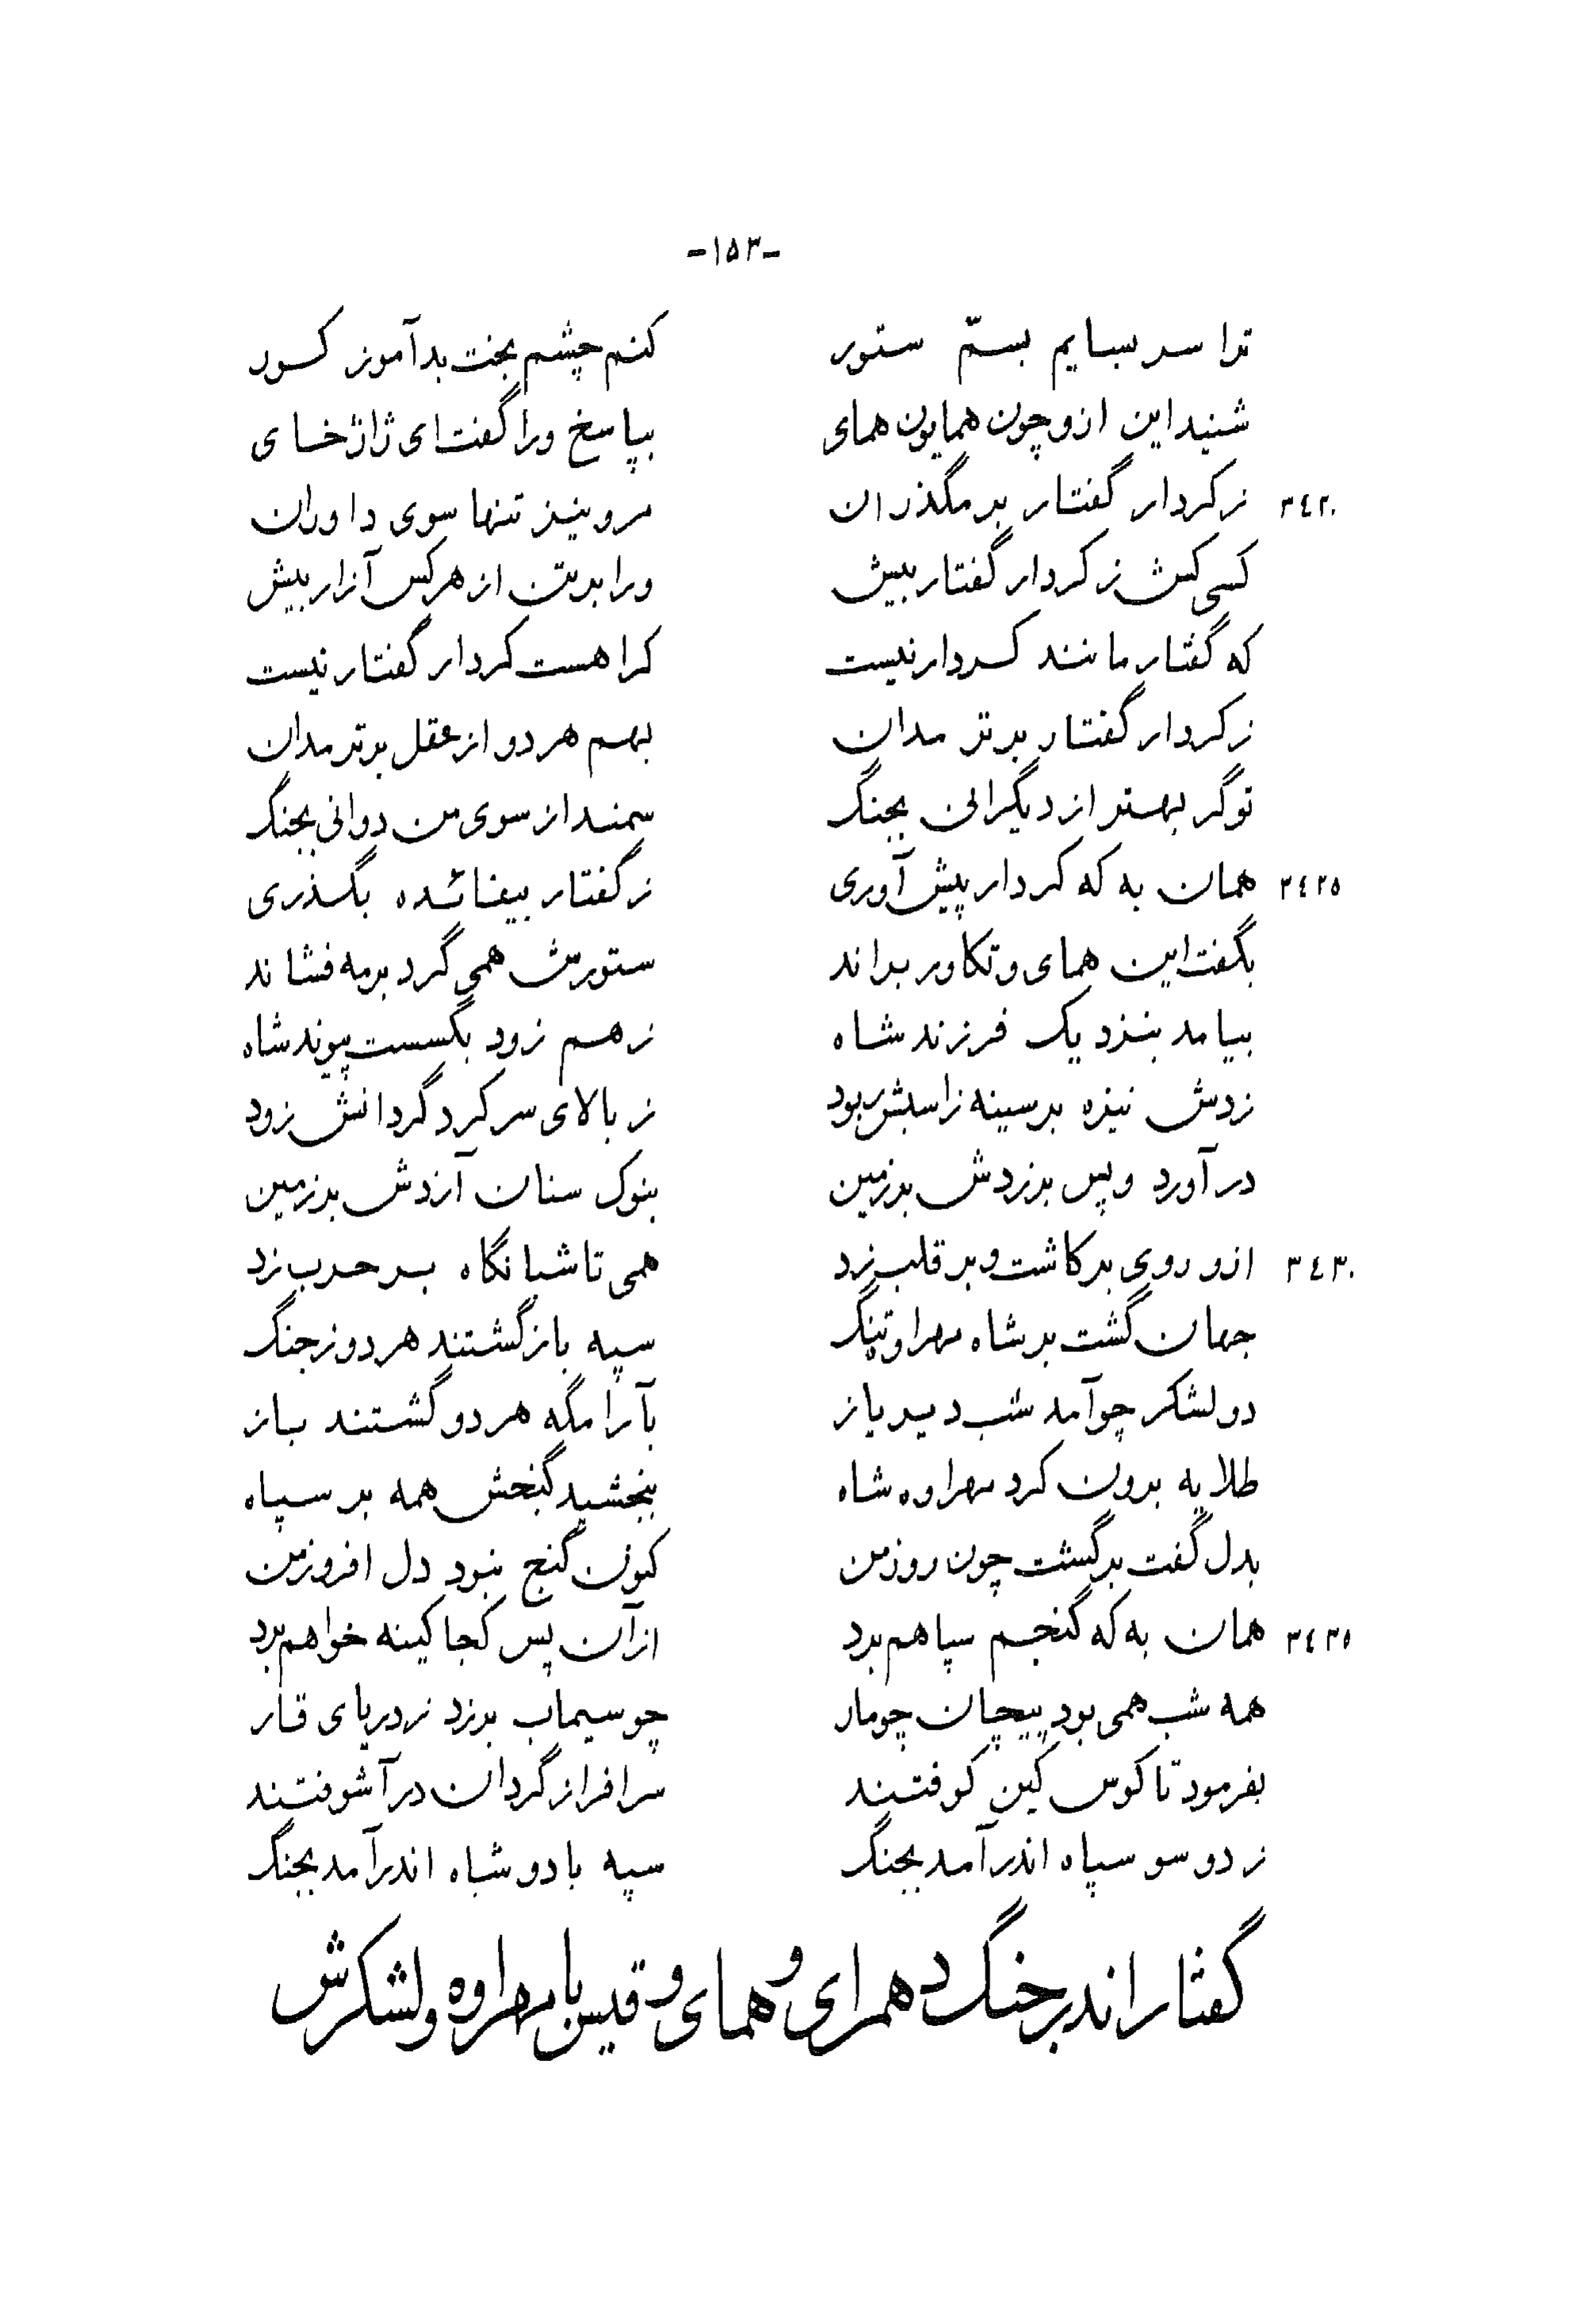 -۱۵۳-
ترا سر بسایم بسمّ ستور کنم چشم بخت بدآموز کور
شنید این ازو چون همایون همای بپاسخ ورا گفت ای ژاژخای
۳٤۲۰ ز کردار گفتار بر مگذران مرو نیز تنها سوی داوران
کسی کش ز کردار گفتار بیش ورا بر تن از هر کس آزار بیش
که گفتار مانند کردار نیست کرا هست کردار گفتار نیست
ز کردار گفتار برتر مدان بهم هر دو از عقل برتر مدان
تو گر بهتر از دیگرانی بجنگ سمند از سوی من دوانی بجنگ
۳٤۲۵ همان به که کردار پیش آوری ز گفتار بیفائده بگذری
بگفت این همای و تکاور براند ستورش همی گرد بر مه فشاند
بیامد بنزدیک فرزند شاه ز هم زود بگسست پیوند شاه
زدش نیزه بر سینه ز اسبش ربود ز بالای سر کرد گردانش زود
درآورد و پس بر زدش بر زمین بنوک سنان آزدش بر زمین
۳٤۳۰ ازو روی برکاشت و بر قلب زد همی تا شبانگاه بر حرب زد
جهان گشت بر شاه مهراو تنگ سپه بازگشتند هر دو ز جنگ
دو لشکر چو آمد شب دیریاز بآرامگه هر دو گشتند باز
طلایه برون کرد مهراوه شاه ببخشید گنجش همه بر سپاه
بدل گفت برگشت چون روز من کنون گنج نبود دل افروز من
۳٤۳۵ همان به که گنجم سپاهم برد از آن پس کجا کینه خواهم برد
همه شب همی بود پیچان چو مار چو سیماب برزد ز دریای قار
بفرمود تا کوس کین کوفتند سرافراز گردان درآشوفتند
ز دو سو سپاه اندرآمد بجنگ سپه با دو شاه اندرآمد بجنگ
گفتار اندر جنگ دهمرای و همای و قیس با مهراوه و لشکرش